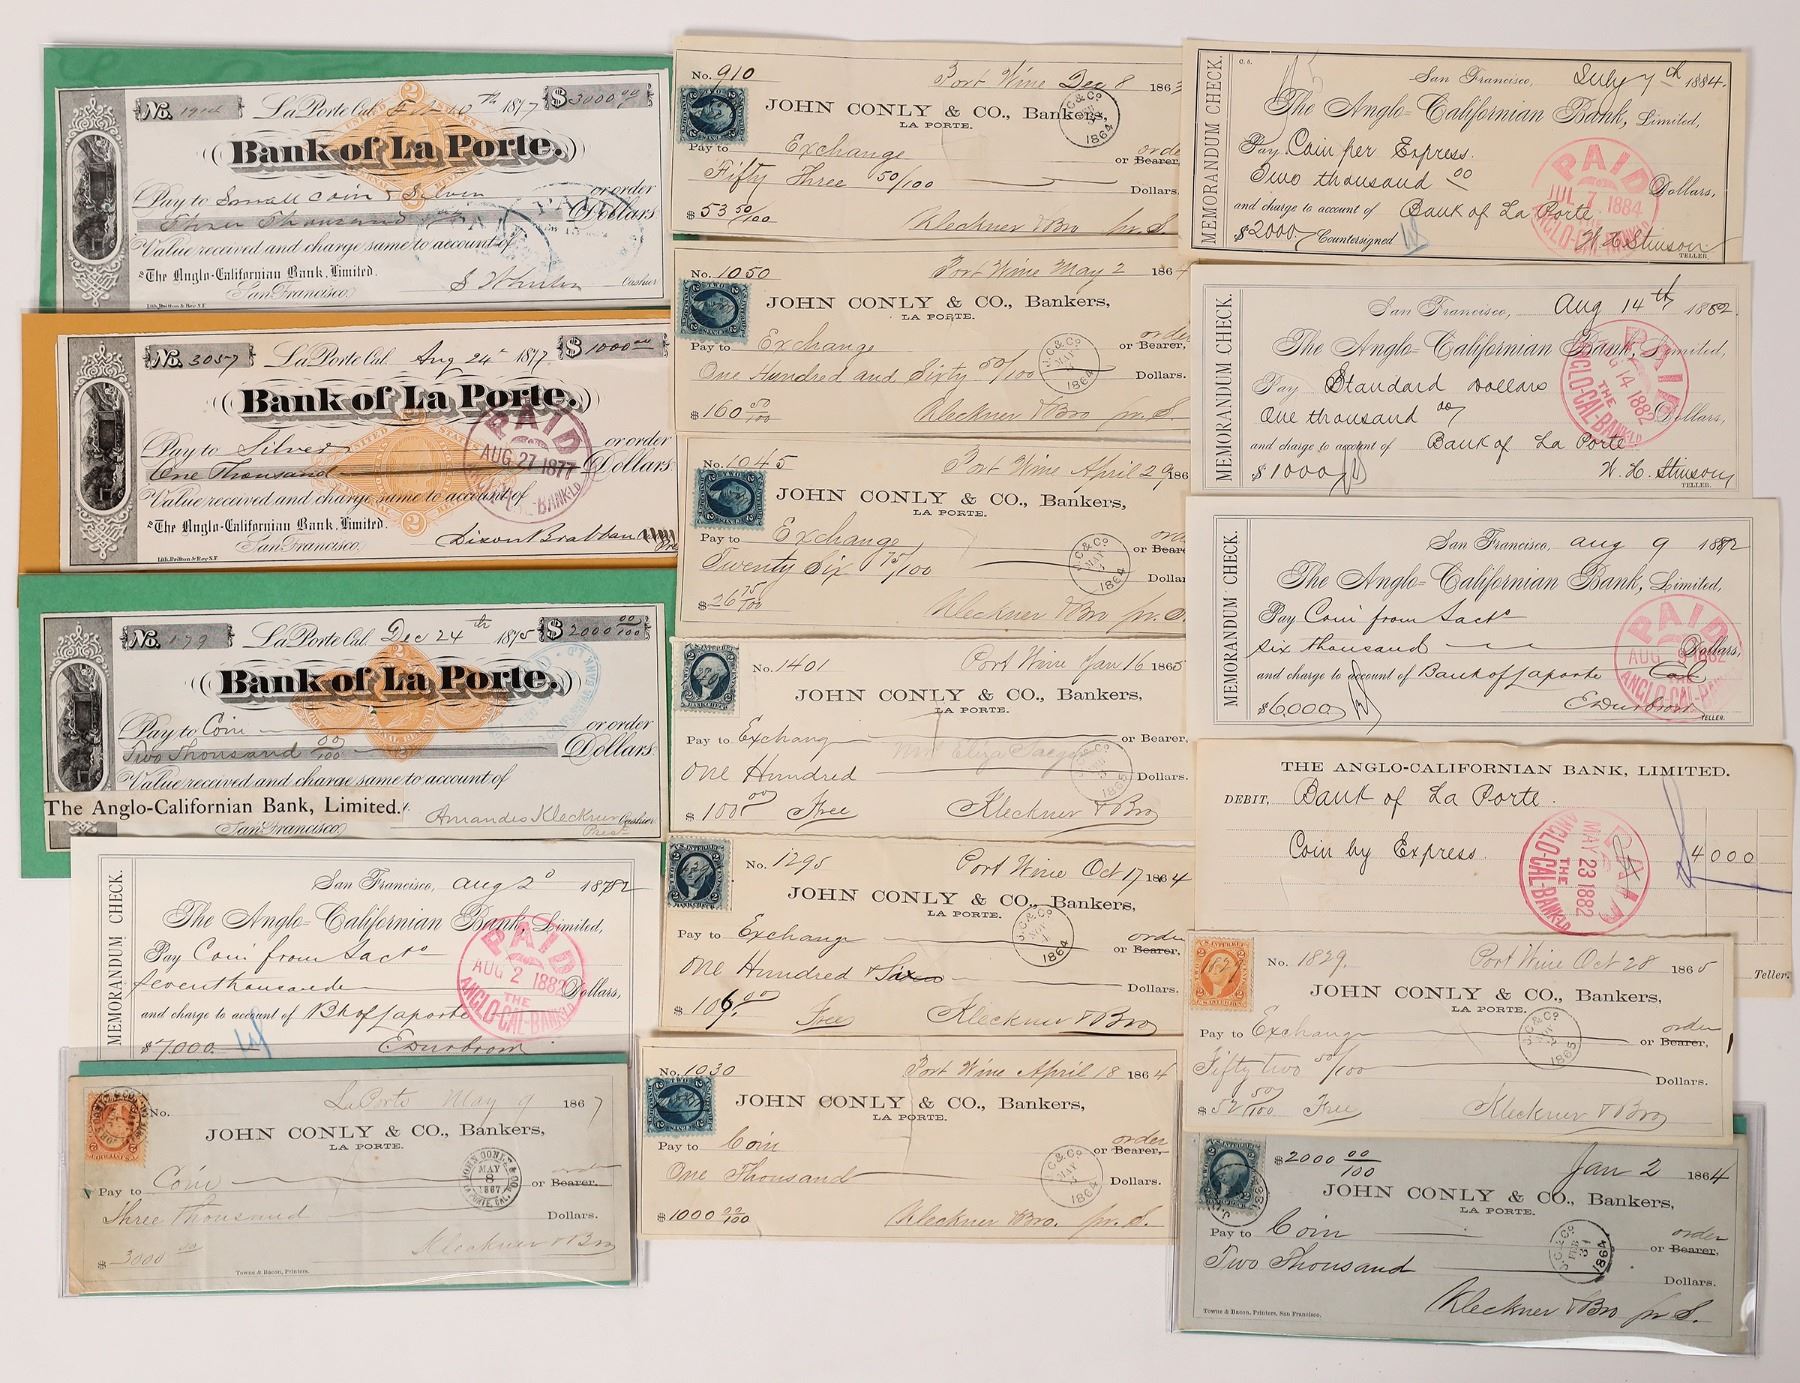 No. 
La Porte Cal. Feb 10th 1877 $3000.00
Bank of La Porte.
Pay to Small Coin & Silver or order
Three Thousand Dollars
Value received and charge same to account of
To The Anglo-Californian Bank, Limited.
San Francisco. Cashier
Lith. Britton & Rey S.F.
No. 3057 La Porte Cal. Aug 24th 1877 $1000.00
Bank of La Porte.
Pay to Silver or order
One Thousand Dollars
Value received and charge same to account of
To The Anglo-Californian Bank, Limited.
San Francisco. Dixon Brabban
Lith. Britton & Rey S.F.
PAID
AUG 27 1877
No. 179 La Porte Cal. Dec 24th 1875 $2000 00/100
Bank of La Porte.
Pay to Coin or order
Two Thousand 00/100 Dollars
Value received and charge same to account of
The Anglo-Californian Bank, Limited.
San Francisco. Amandes Kleckner Cashier
Prest
MEMORANDUM CHECK.
San Francisco, Aug 2d 1882
The Anglo-Californian Bank, Limited,
Pay Coin from Sacto
Seven thousand Dollars,
and charge to account of Bk of Laporte
$7,000
PAID
AUG 2 1882
THE
ANGLO-CAL-BANK-LD
No. La Porte May 9 1867
JOHN CONLY & CO., Bankers,
LA PORTE.
Pay to Coin or Bearer. order
Three Thousand Dollars.
$ 3000.00 Kleckner & Bro
Towne & Bacon, Printers.
JOHN CONLY & CO
MAY 8 1867
LA PORTE, CAL.
No. 910 Port Wine Dec 8 1863
JOHN CONLY & CO., Bankers,
LA PORTE.
Pay to Exchange or Bearer. order
Fifty Three 50/100 Dollars.
$ 53 50/100 Kleckner & Bro pr. S.
No. 1050 Port Wine May 2 1864
JOHN CONLY & CO., Bankers,
LA PORTE.
Pay to Exchange or Bearer, order
One Hundred and Sixty 50/100 Dollars.
$ 160 50/100 Kleckner & Bro pr. S.
J.C. & Co MAY 1864
No. 1045 Port Wine April 29 186
JOHN CONLY & CO., Bankers,
LA PORTE.
Pay to Exchange or Bear
Twenty Six 75/100 Dollar
$ 26 75/100 Kleckner & Bro pr. S.
J.C. & Co MAY 1864
No. 1401 Port Wine Jan 16 1865
JOHN CONLY & CO., Bankers,
LA PORTE.
Pay to Exchang or Bearer,
One Hundred Dollars.
$ 100.00 Free Kleckner & Bro
No. 1295 Port Wine Oct 17 1864
JOHN CONLY & CO., Bankers,
LA PORTE.
Pay to Exchange or Bearer, order
One Hundred & Six Dollars.
$ 106.00 Free Kleckner & Bro
J.C. & Co 1864
No. 1030 Port Wine April 18 1864
JOHN CONLY & CO., Bankers,
LA PORTE.
Pay to Coin or Bearer, order
One Thousand Dollars.
$ 1000 00/100 Kleckner & Bro. pr. S.
J.C. & Co MAY 1864
MEMORANDUM CHECK.
San Francisco, July 7th 1884.
The Anglo-Californian Bank, Limited,
Pay Coin per Express.
Two thousand 00 Dollars,
and charge to account of Bank of La Porte
$2000 Countersigned W. H. Stinson
TELLER.
PAID
JUL 7 1884
ANGLO-CAL-BANK-LD
MEMORANDUM CHECK.
San Francisco, Aug 14th 1882.
The Anglo-Californian Bank, Limited,
Pay Standard Dollars
One thousand 00 Dollars,
and charge to account of Bank of La Porte
$1000 W. H. Stinson
TELLER.
PAID
AUG 14 1882
THE
ANGLO-CAL-BANK-LD
MEMORANDUM CHECK.
San Francisco, Aug 9 1882
The Anglo-Californian Bank, Limited,
Pay Coin from Sacto
Six thousand Dollars,
and charge to account of Bank of Laporte Cal
$6,000
TELLER.
PAID
AUG 9 1882
THE ANGLO-CALIFORNIAN BANK, LIMITED.
DEBIT, Bank of La Porte.
Coin by Express. 4000
PAID
MAY 23 1882
THE
ANGLO-CAL-BANK-LD
Teller.
No. 1829. Port Wine Oct 28 1865
JOHN CONLY & CO., Bankers,
LA PORTE.
Pay to Exchange or Bearer, order
Fifty two 50/100 Dollars.
$ 52 50/100 Free Kleckner & Bro
J.C. & Co 1865
$2000 00/100 Jan 2 1864
JOHN CONLY & CO., Bankers,
LA PORTE.
Pay to Coin or Bearer, order
Two Thousand Dollars.
Kleckner & Bro pr S.
Towne & Bacon, Printers, San Francisco.
J.C. & Co FEB 1864